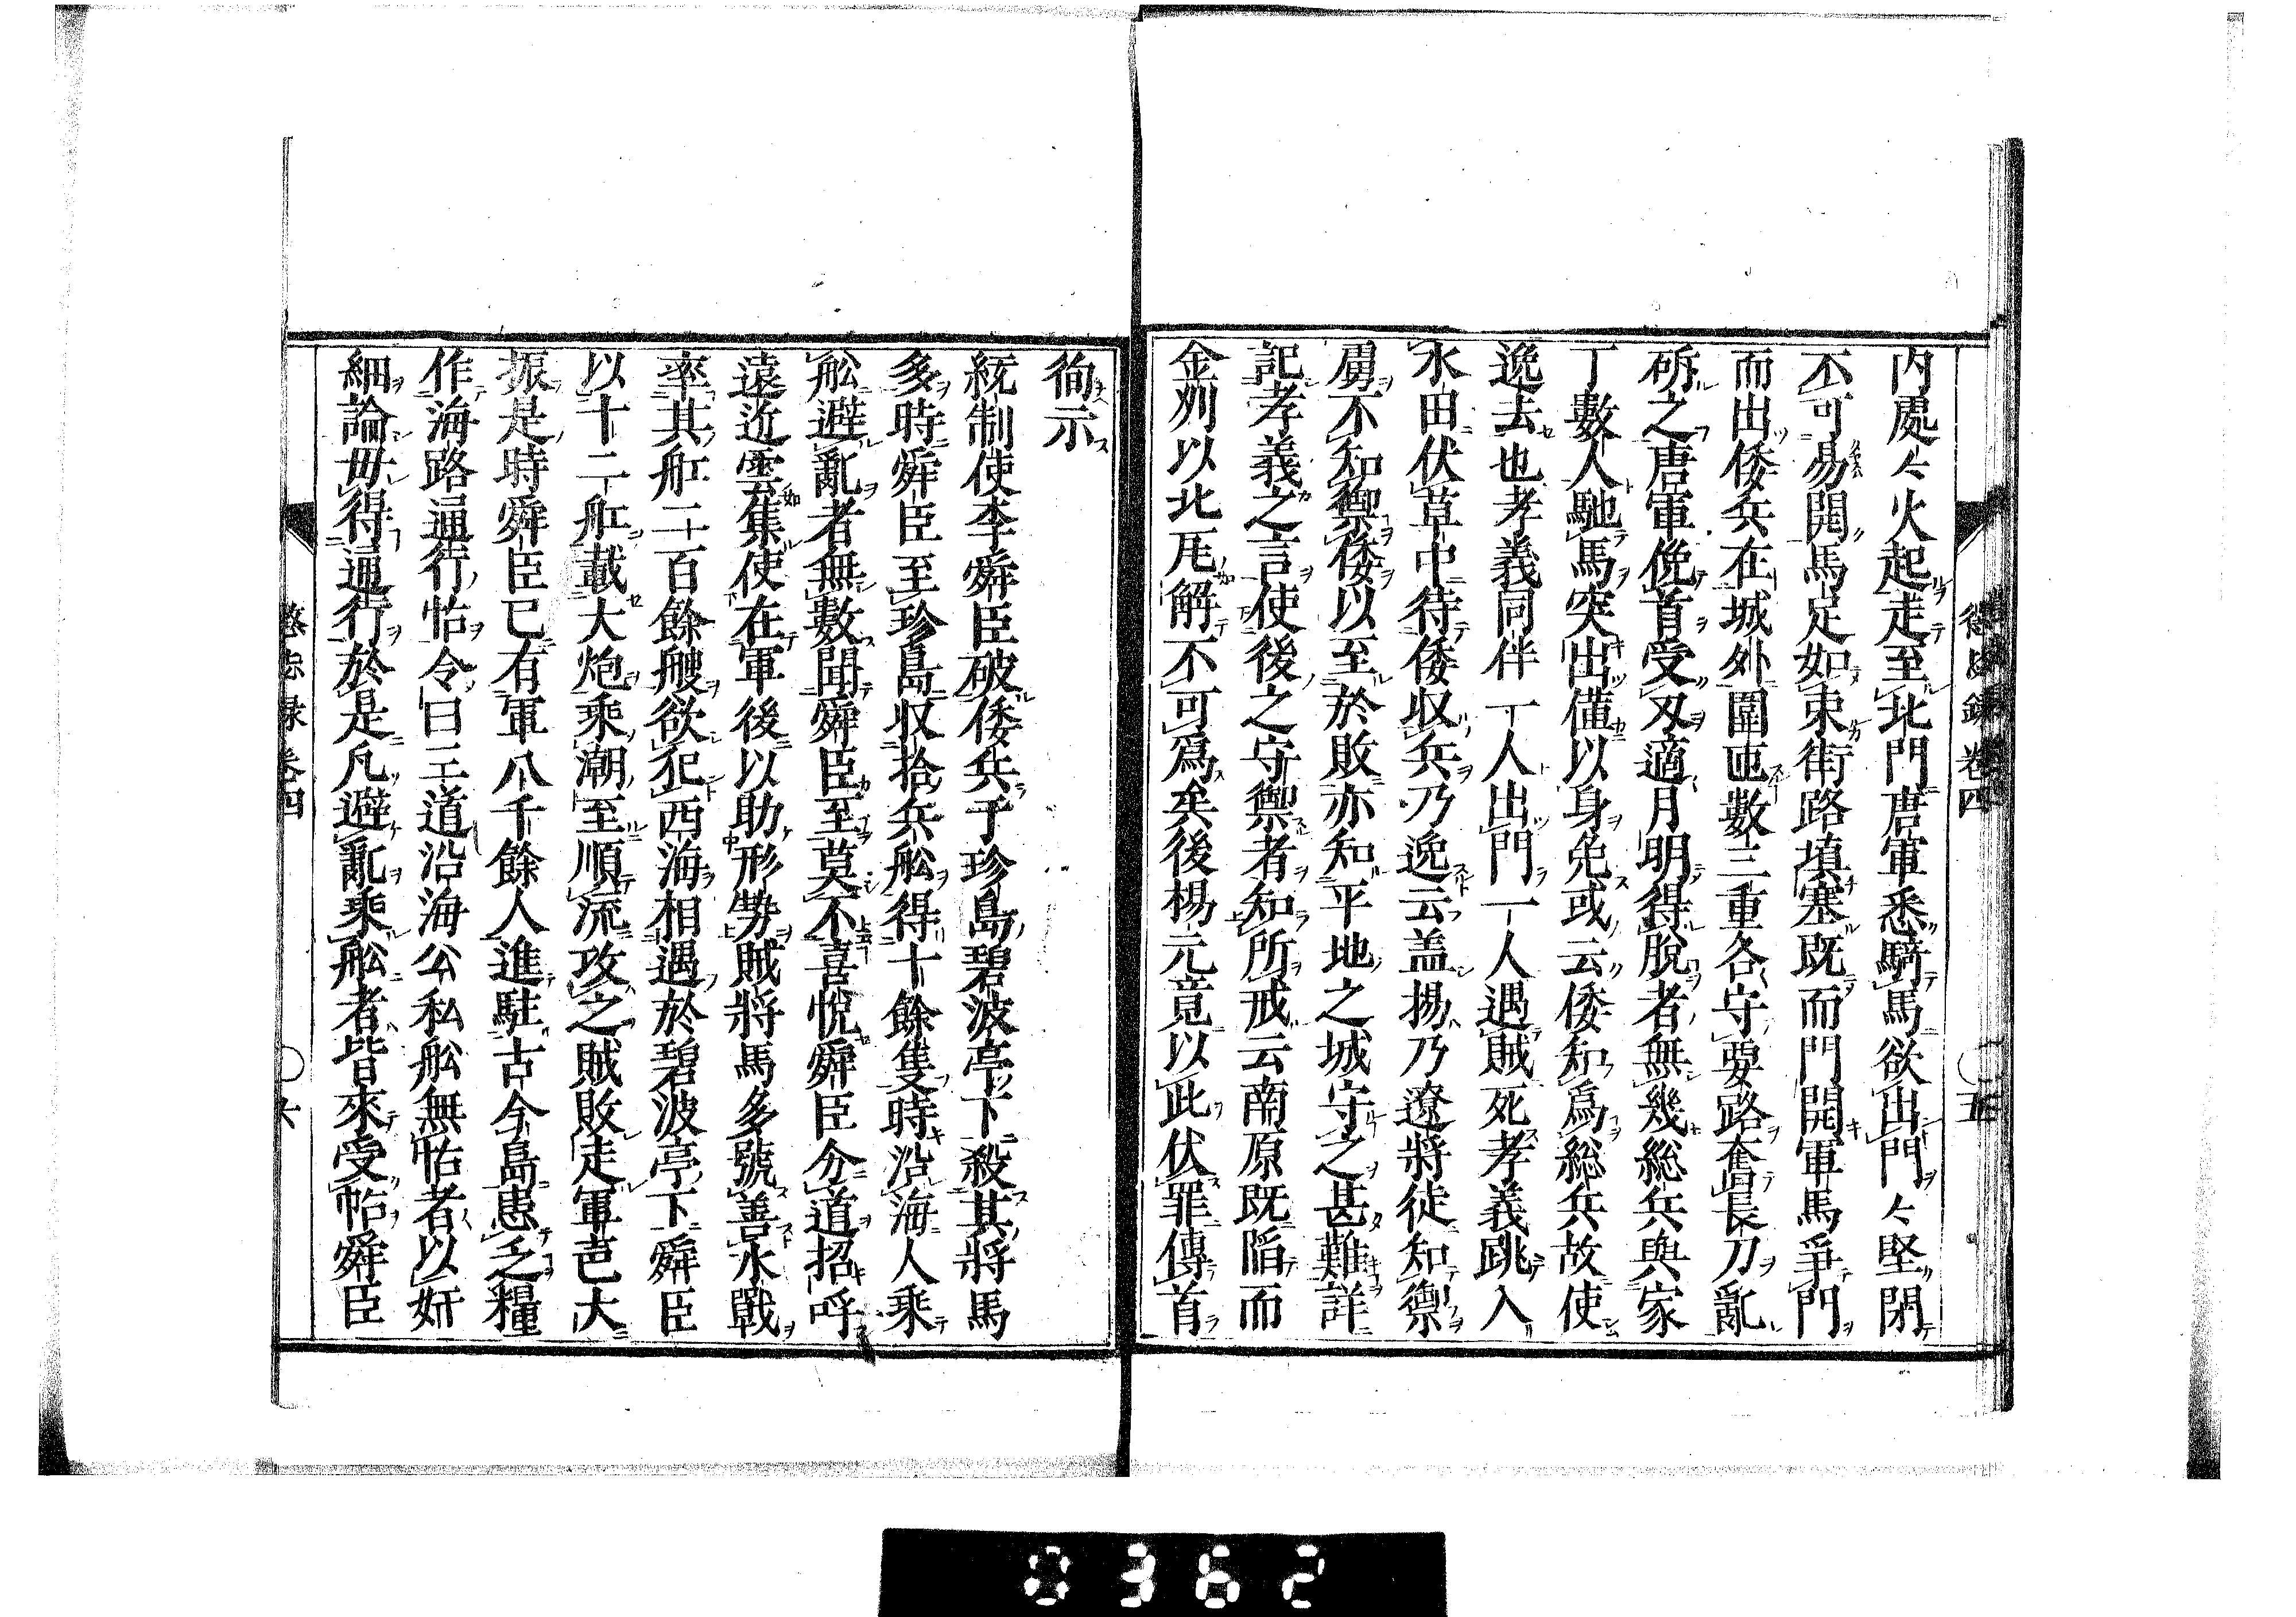 内處々火起走至北門唐軍悉騎馬欲出門々堅閉
不可易開馬足如束街路填塞既而門開軍馬爭門
而出倭兵在城外圍匝數三重各守要路奮長刀亂
斫之唐軍俛首受刃適月明得脫者無幾総兵與家
丁數人馳馬突出僅以身免或云倭知爲総兵故使
逸去也孝義同伴一人出門一人遇賊死孝義跳入
水田伏草中待倭収兵乃逸云盖楊乃遼將徒知禦
虜不知禦倭以至於敗亦知平地之城守之甚難詳
記孝義之言使後之守禦者知所戒云南原既陷而
金州以北瓦解不可爲矣後楊元竟以此伏罪傳首
徇示
統制使李舜臣破倭兵于珍島碧波亭下殺其將馬
多時舜臣至珍島収拾兵舩得十餘隻時沿海人乘
舩避亂者無數聞舜臣至莫不喜悅舜臣分道招呼
遠近雲集使在軍後以助形勢賊將馬多號善水戰
率其舡二百餘艘欲犯西海相遇於碧波亭下舜臣
以十二舡載大炮乘潮至順流攻之賊敗走軍芭大
振是時舜臣已有軍八千餘人進駐古今島患乏糧
作海路通行帖令曰三道沿海公私舩無帖者以奸
細論毋得通行於是凡避亂乘舩者皆來受帖舜臣
懲毖録 卷四 五
懲毖録 卷四 六
0362